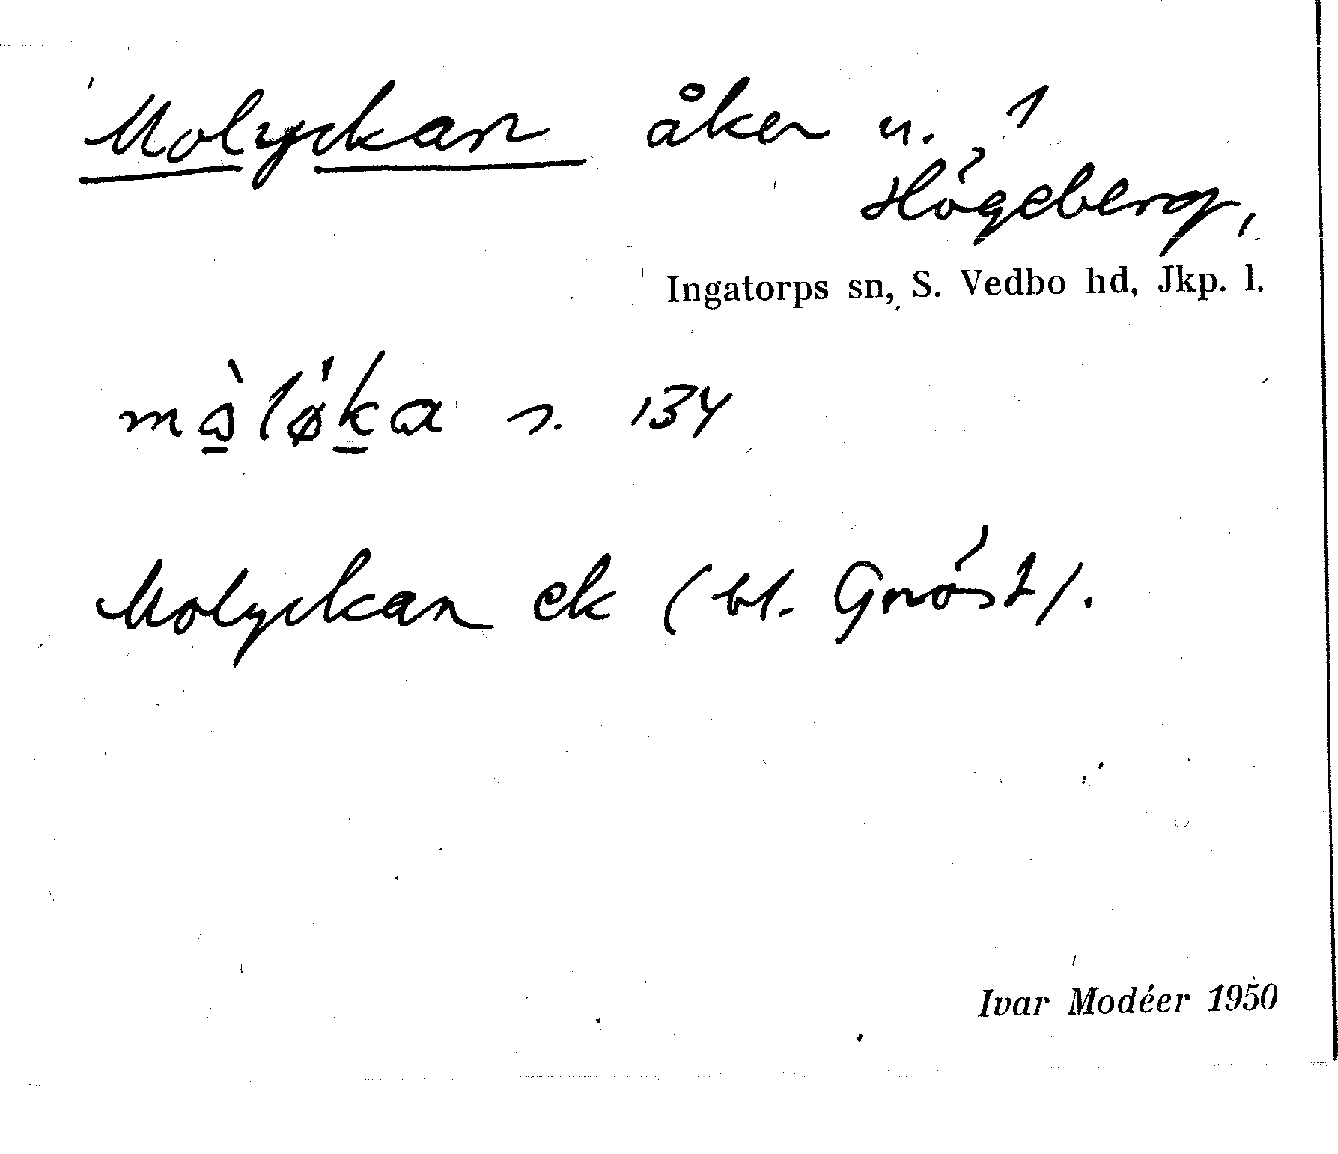 Molyckan åker u. 1
Högeberg,
Ingatorps sn, S. Vedbo hd, Jkp. l.
s. 134
Molyckan ek (bl. Gnöst).
Ivar Modéer 1950